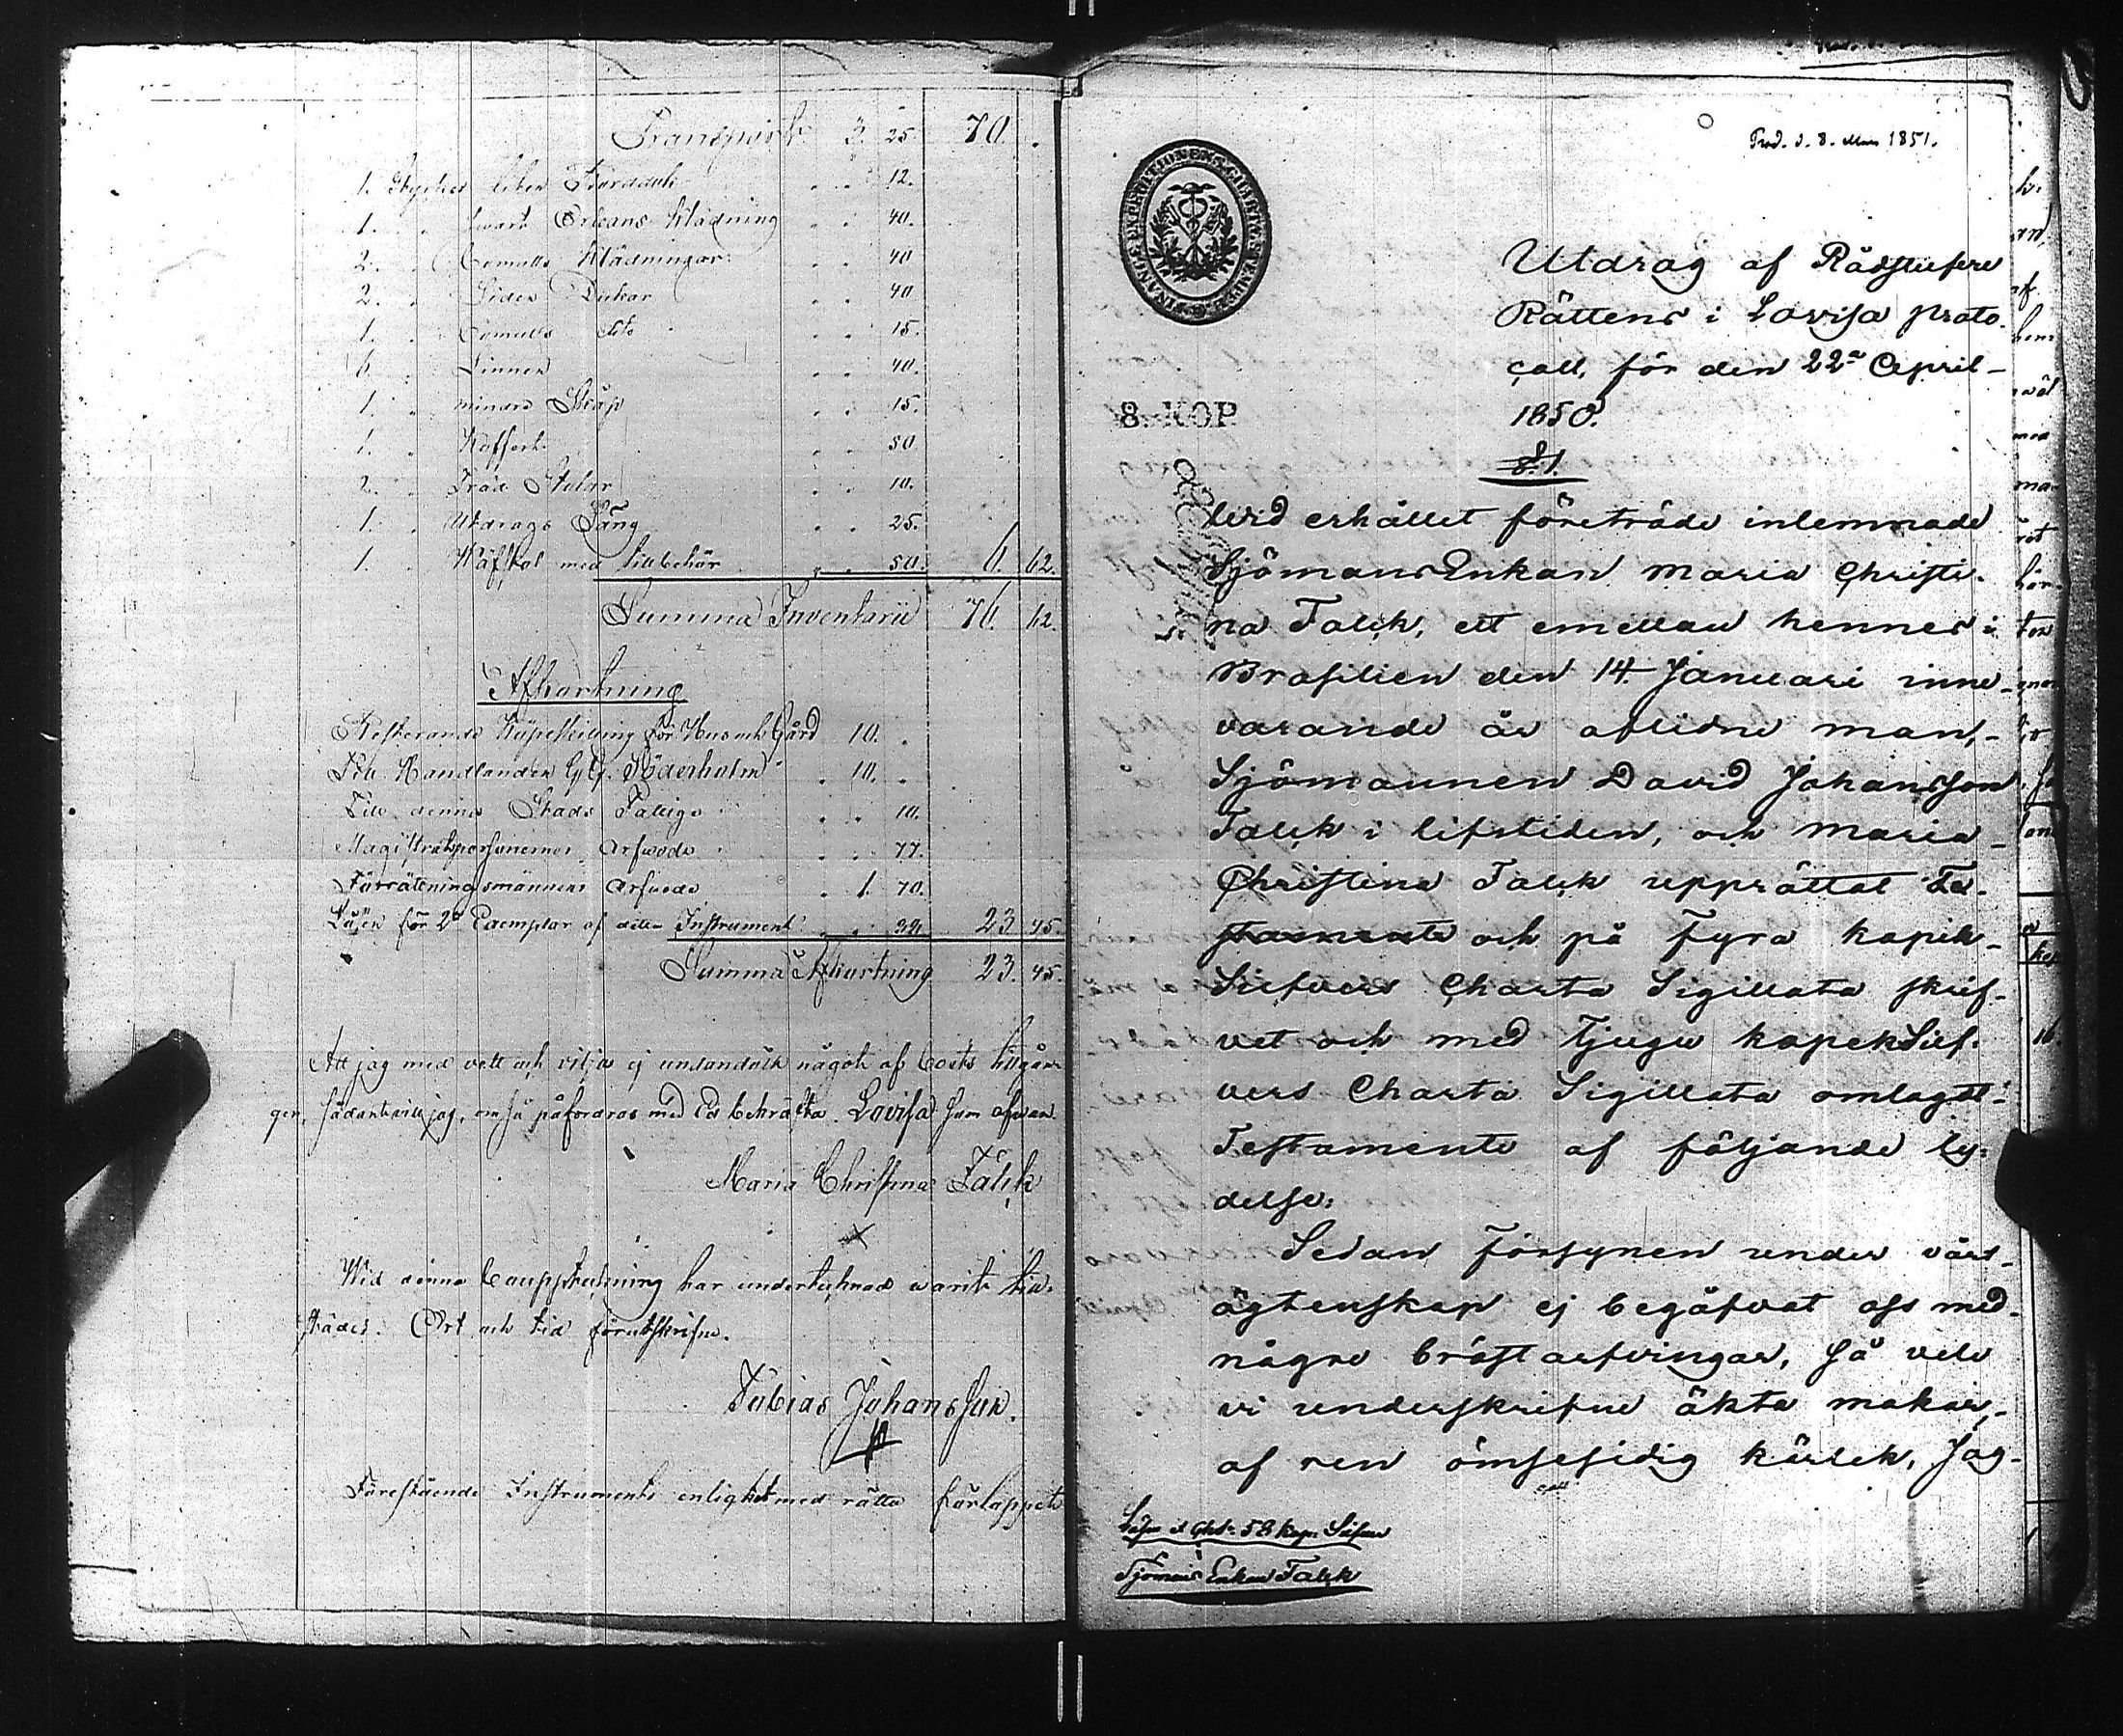 Transport 3. 25. 70. .
1. Stycket liten . . 12.
1. " svart Orleans Klädning . . 40.
2. " Bomulls Klädningar . . 40
2. " Sides Dukar . . 40
1. " Bomulls dito . . 15.
6. " Linnen . . 40.
1. " mindre Skåp . . 15.
1. " Koffert . . 50
2. " Träd Stolar . . 10.
1. " Utdrags Säng . . 25.
1. " med tillbehör . . 50. 6. 62.
Summa Inventarii 76. 62.
Afkortning
Resterande Köpeskilling för Hus och Gård 10. .
Till Handlanden Söderholm . 10. .
Till denna Stads Fattige . . 10.
Magistratspersonernes Arfvode . . 77.
Förrätningsmännens Arfvode . 1. 70.
Lösen för 2ne Exemplar af detta Instrument . . 23. 45.
Summa Afkortning 23. 45.
Att jag med vett och vilja ej undandolt något af boets tillgån-
gar, sådant vill jag, om så påfordras med Ed bekräfta. Lovisa som ofvan.
Maria Christina Falck
Wid denna bouppteckning har undertecknad varit till-
städes. Ort och tid förutskrifne.
Tobias Johansson.
Förestående Instrument enlighet med rätta förloppet
Prod. d. 8. Mars 1851.
FINANCE EXPEDITIONENS CHARTÆ STEMPEL
8. KOP
Utdrag af Rådstufvu
Rättens i Lovisa proto-
coll, för den 22a April
1850.
§.1.
Wid erhållet företräde inlemnade
SjömansEnkan Maria Christi-
na Falck, ett emellan hennes i
Brasilien den 14 Januari inne-
varande år aflidne man,
Sjömannen David Johansson
Falck i lifstiden, och Maria
Christina Falck upprättat Te-
stamente och på Fyra kopek
Silfvers Charta Sigillata skrif-
vet och med Tjugu kopek Silf-
vers Charta Sigillata omlagdt
Testamente af följande ly-
delse:
Sedan Försynen under vårt
ägtenskap ej begåfvat oss med
någre bröstarfvingar, så vele
vi underskrifne äkta makar,
af ren ömsesidig kärlek, Jag
Lösen 58 kop. Silfver
Sjömans Enkan Falck